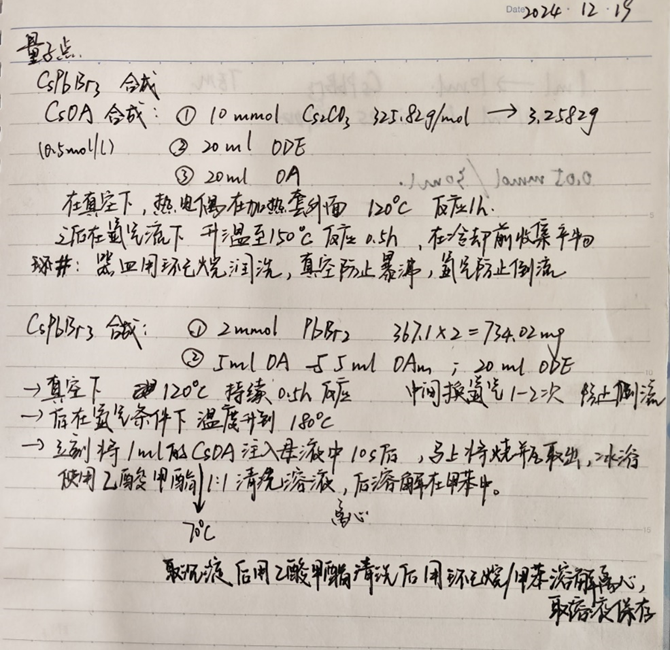 Date 2024.12.19
量子点
CsPbBr3 合成
CsOA 合成: ① 10 mmol Cs2CO3 325.82g/mol → 3.2582g
(0.5mol/L) ② 20 ml ODE
③ 20ml OA
在真空下, 热电偶在加热套外面 120°C 反应1h.
之后在氩气流下 升温至150°C 反应0.5h, 在冷却前收集产物
器皿用环己烷润洗, 真空防止暴沸, 氩气防止倒流
CsPbBr3 合成: ① 2mmol PbBr2 367.1×2=734.02mg
② 5ml OA 5ml OAm; 20ml ODE
→ 真空下 120°C 持续0.5h反应 中间换氩气1-2次 防止倒流
→ 后在氩气条件下 温度升到 180°C
→ 立刻将1ml的CsOA注入母液中10s后, 马上将烧瓶取出, 冰浴
使用乙酸甲酯 1:1清洗溶液, 后溶解在甲苯中。
离心
70°C
取沉淀后用乙酸甲酯清洗后用环己烷/甲苯溶解离心,
取溶液保存